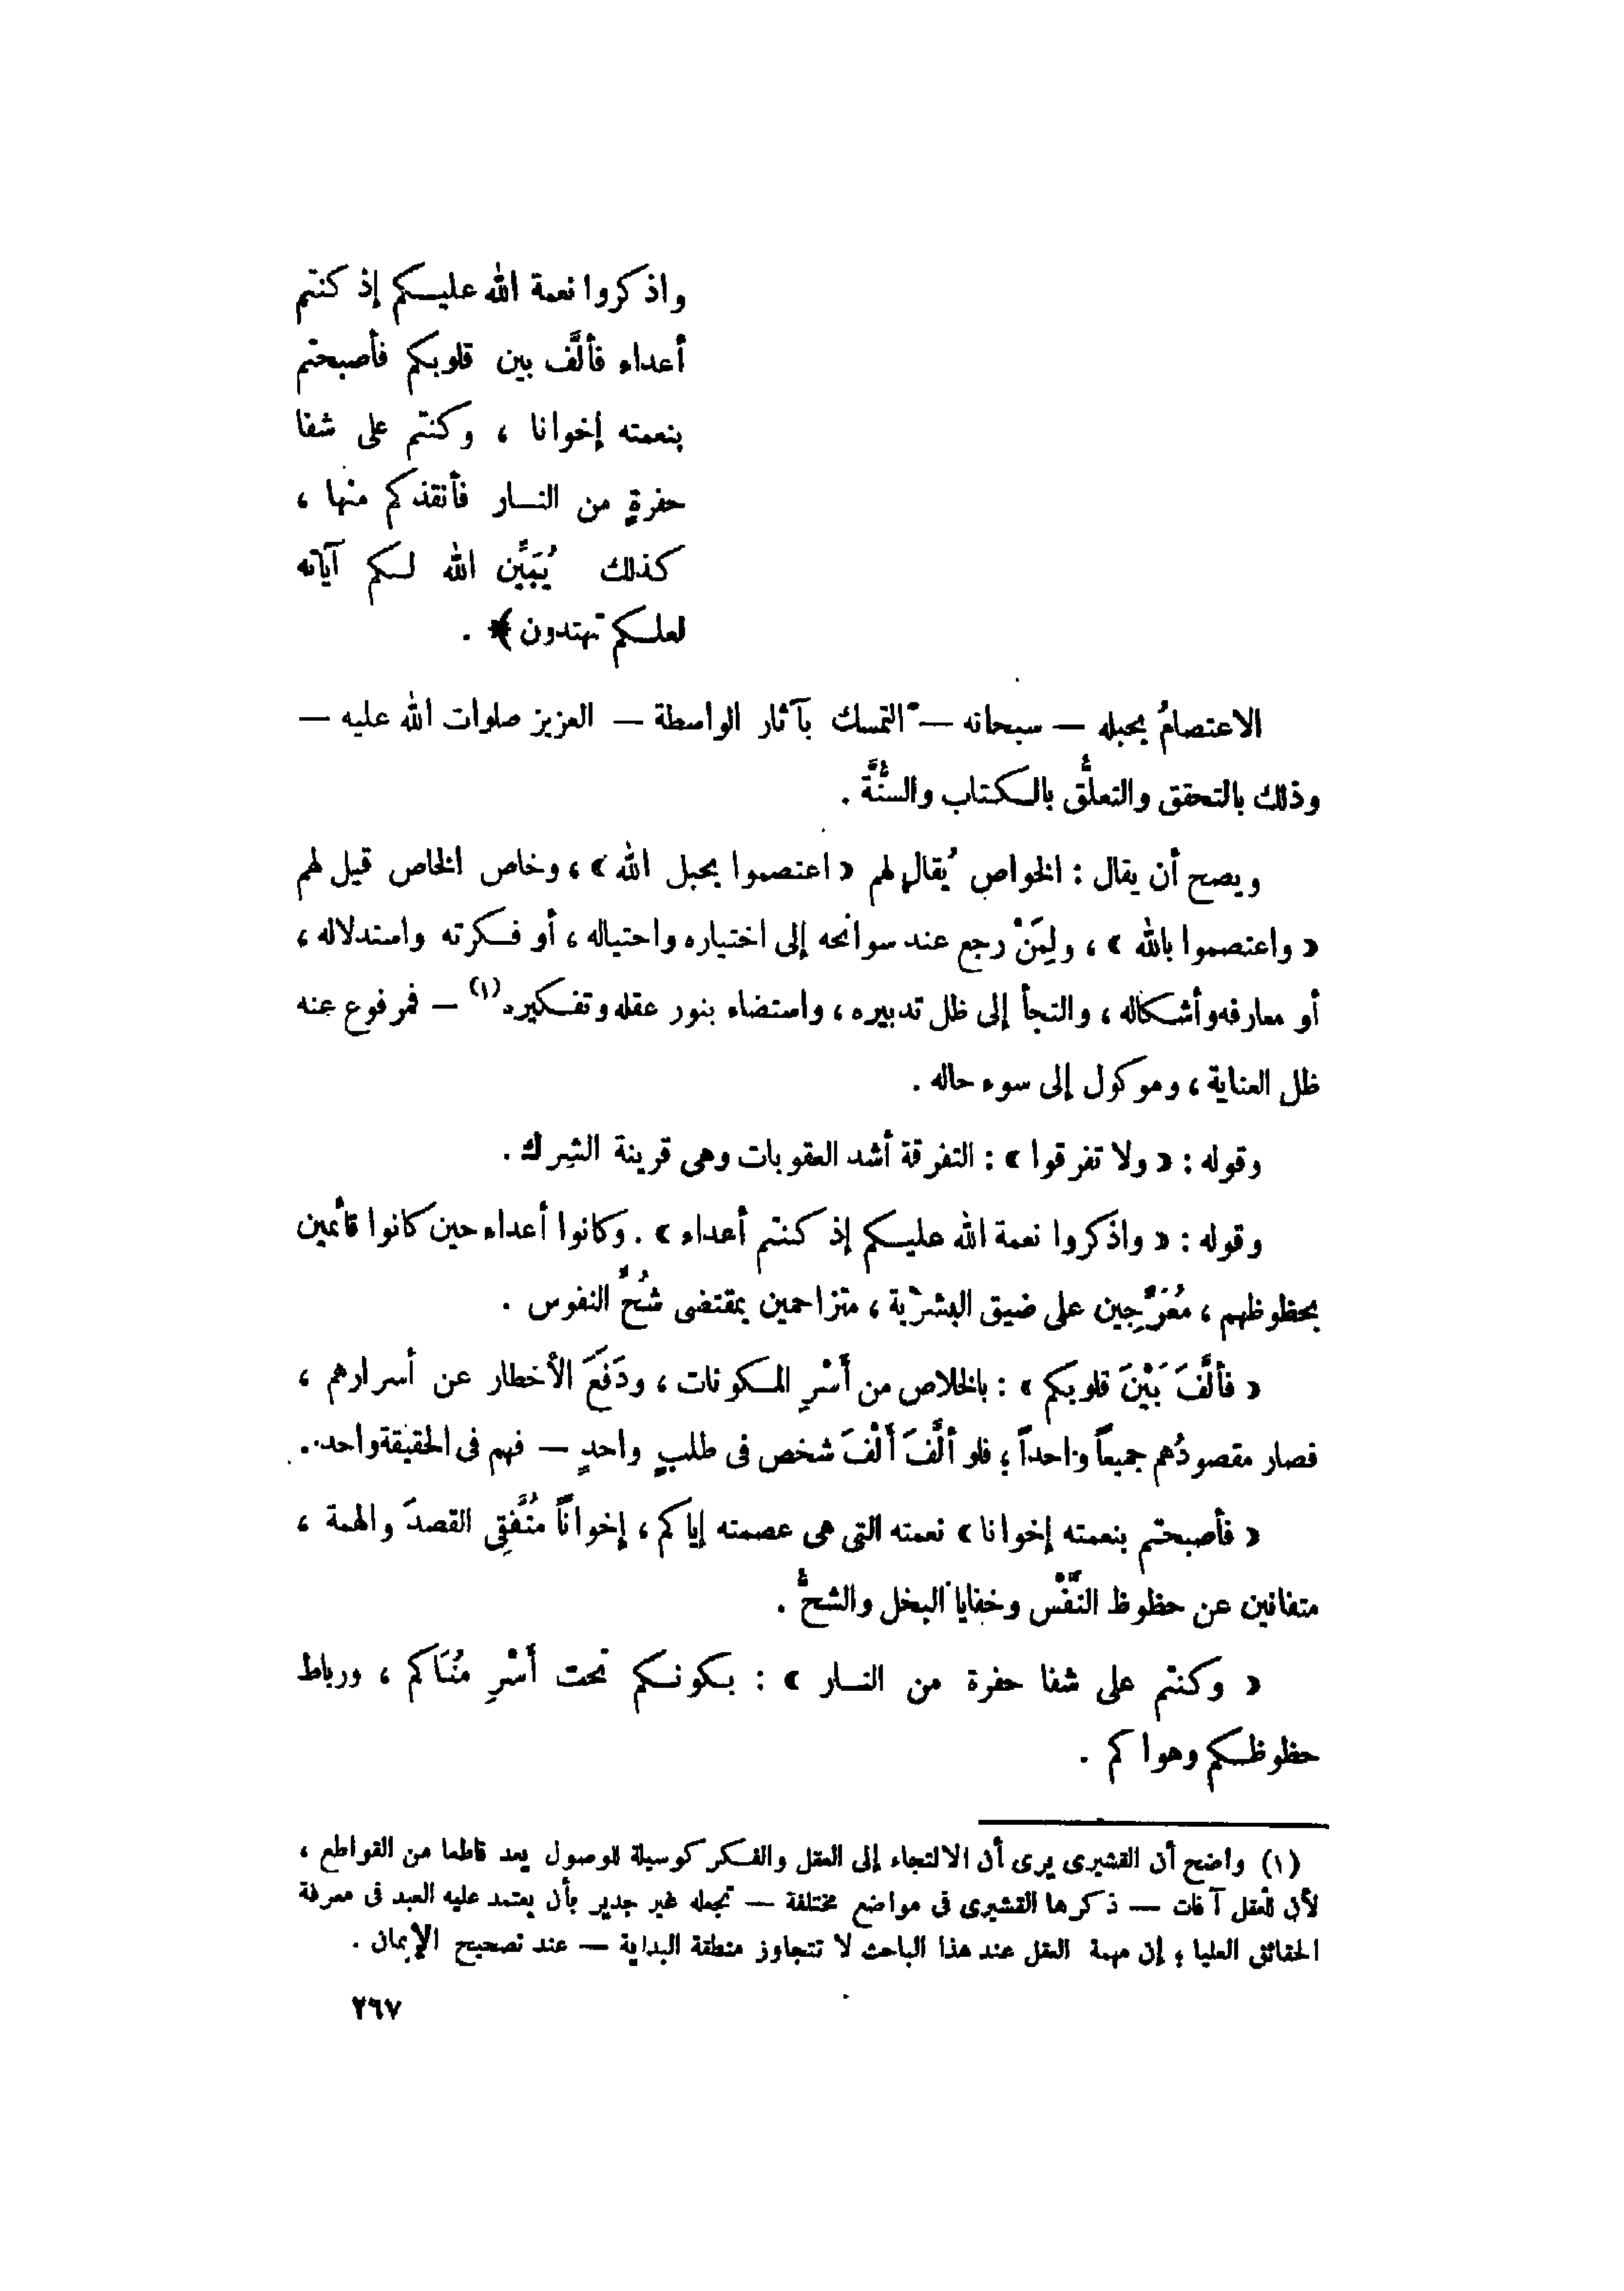 واذكروا نعمة الله عليكم إذ كنتم
أعداء فألَّف بين قلوبكم فأصبحتم
بنعمته إخوانا ، وكنتم على شفا
حفرةٍ من النار فأنقذكم منها ،
كذلك يُبَيِّن الله لكم آياته
لعلكم تهتدون ﴾ .
الاعتصامُ بحبله — سبحانه — التمسك بآثار الواسطة — العزيز صلوات الله عليه —
وذلك بالتحقق والتعلُّق بالكتاب والسُّنَّة .
ويصح أن يقال : الخواص يُقال لهم « اعتصموا بحبل الله » ، وخاص الخاص قيل لهم
« واعتصموا بالله » ، ولِمَنْ رجع عند سوانحه إلى اختياره واحتياله ، أو فكرته واستدلاله ،
أو معارفه وأشكاله ، والتجأ إلى ظل تدبيره ، واستضاء بنور عقله وتفكيره (١) — فمرفوع عنه
ظل العناية ، وموكول إلى سوء حاله .
وقوله : « ولا تفرقوا » : التفرقة أشد العقوبات وهى قرينة الشِرك .
وقوله : « واذكروا نعمة الله عليكم إذ كنتم أعداء » . وكانوا أعداء حين كانوا قائمين
بحظوظهم ، مُعَرِّجين على ضيق البشرية ، متزاحمين بمقتضى شُحِّ النفوس .
« فألَّفَ بَيْنَ قلوبكم » : بالخلاص من أَسْرِ المكونات ، ودَفَعَ الأخطار عن أسرارهم ،
فصار مقصودُهم جميعاً واحداً ؛ فلو ألَّفَ أَلْفَ شخص فى طلبٍ واحدٍ — فهم فى الحقيقة واحد .
« فأصبحتم بنعمته إخوانا » نعمته التى هى عصمته إياكم ، إخواناً مُتَّفِقِى القصدَ والهمة ،
متفانين عن حظوظ النَّفْس وخفايا البخل والشحُّ .
« وكنتم على شفا حفرة من النار » : بكونكم تحت أَسْرِ مُنَاكم ، ورباط
حظوظكم وهواكم .
(١) واضح أن القشيرى يرى أن الالتجاء إلى العقل والفكر كوسيلة للوصول يعد قاطعا من القواطع ،
لأن للعقل آفات — ذكرها القشيرى فى مواضع مختلفة — تجعله غير جدير بأن يعتمد عليه العبد فى معرفة
الحقائق العليا ؛ إن مهمة العقل عند هذا الباحث لا تتجاوز منطقة البداية — عند تصحيح الإيمان .
٢٦٧